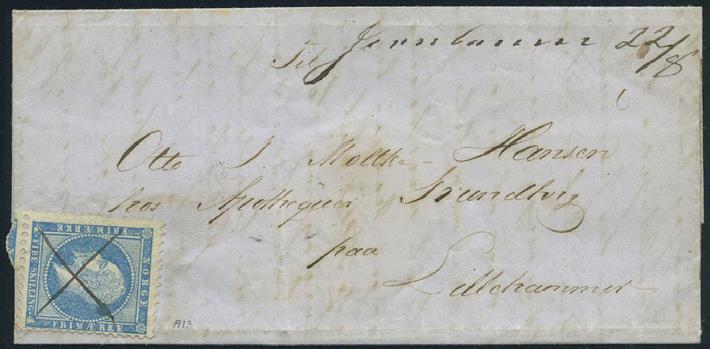 Jernbanen 22/8
Til
Otto J. Moltke-Hansen
hos Apothequer Grundtvig
paa
Lillehammer
NORGE
FRIMÆRKE
FIRE SKILLING
FRIMÆRKE
A13